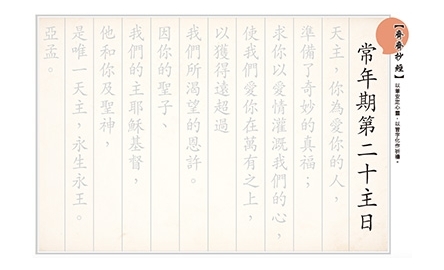 【齊齊抄經】
以筆安定心靈，以習字化作祈禱。
常年期第二十主日
天主，你為愛你的人，
準備了奇妙的真福；
求你以愛情灌溉我們的心，
使我們愛你在萬有之上，
以獲得遠超過
我們所渴望的恩許。
因你的聖子、
我們的主耶穌基督，
他和你及聖神，
是唯一天主，永生永王。
亞孟。